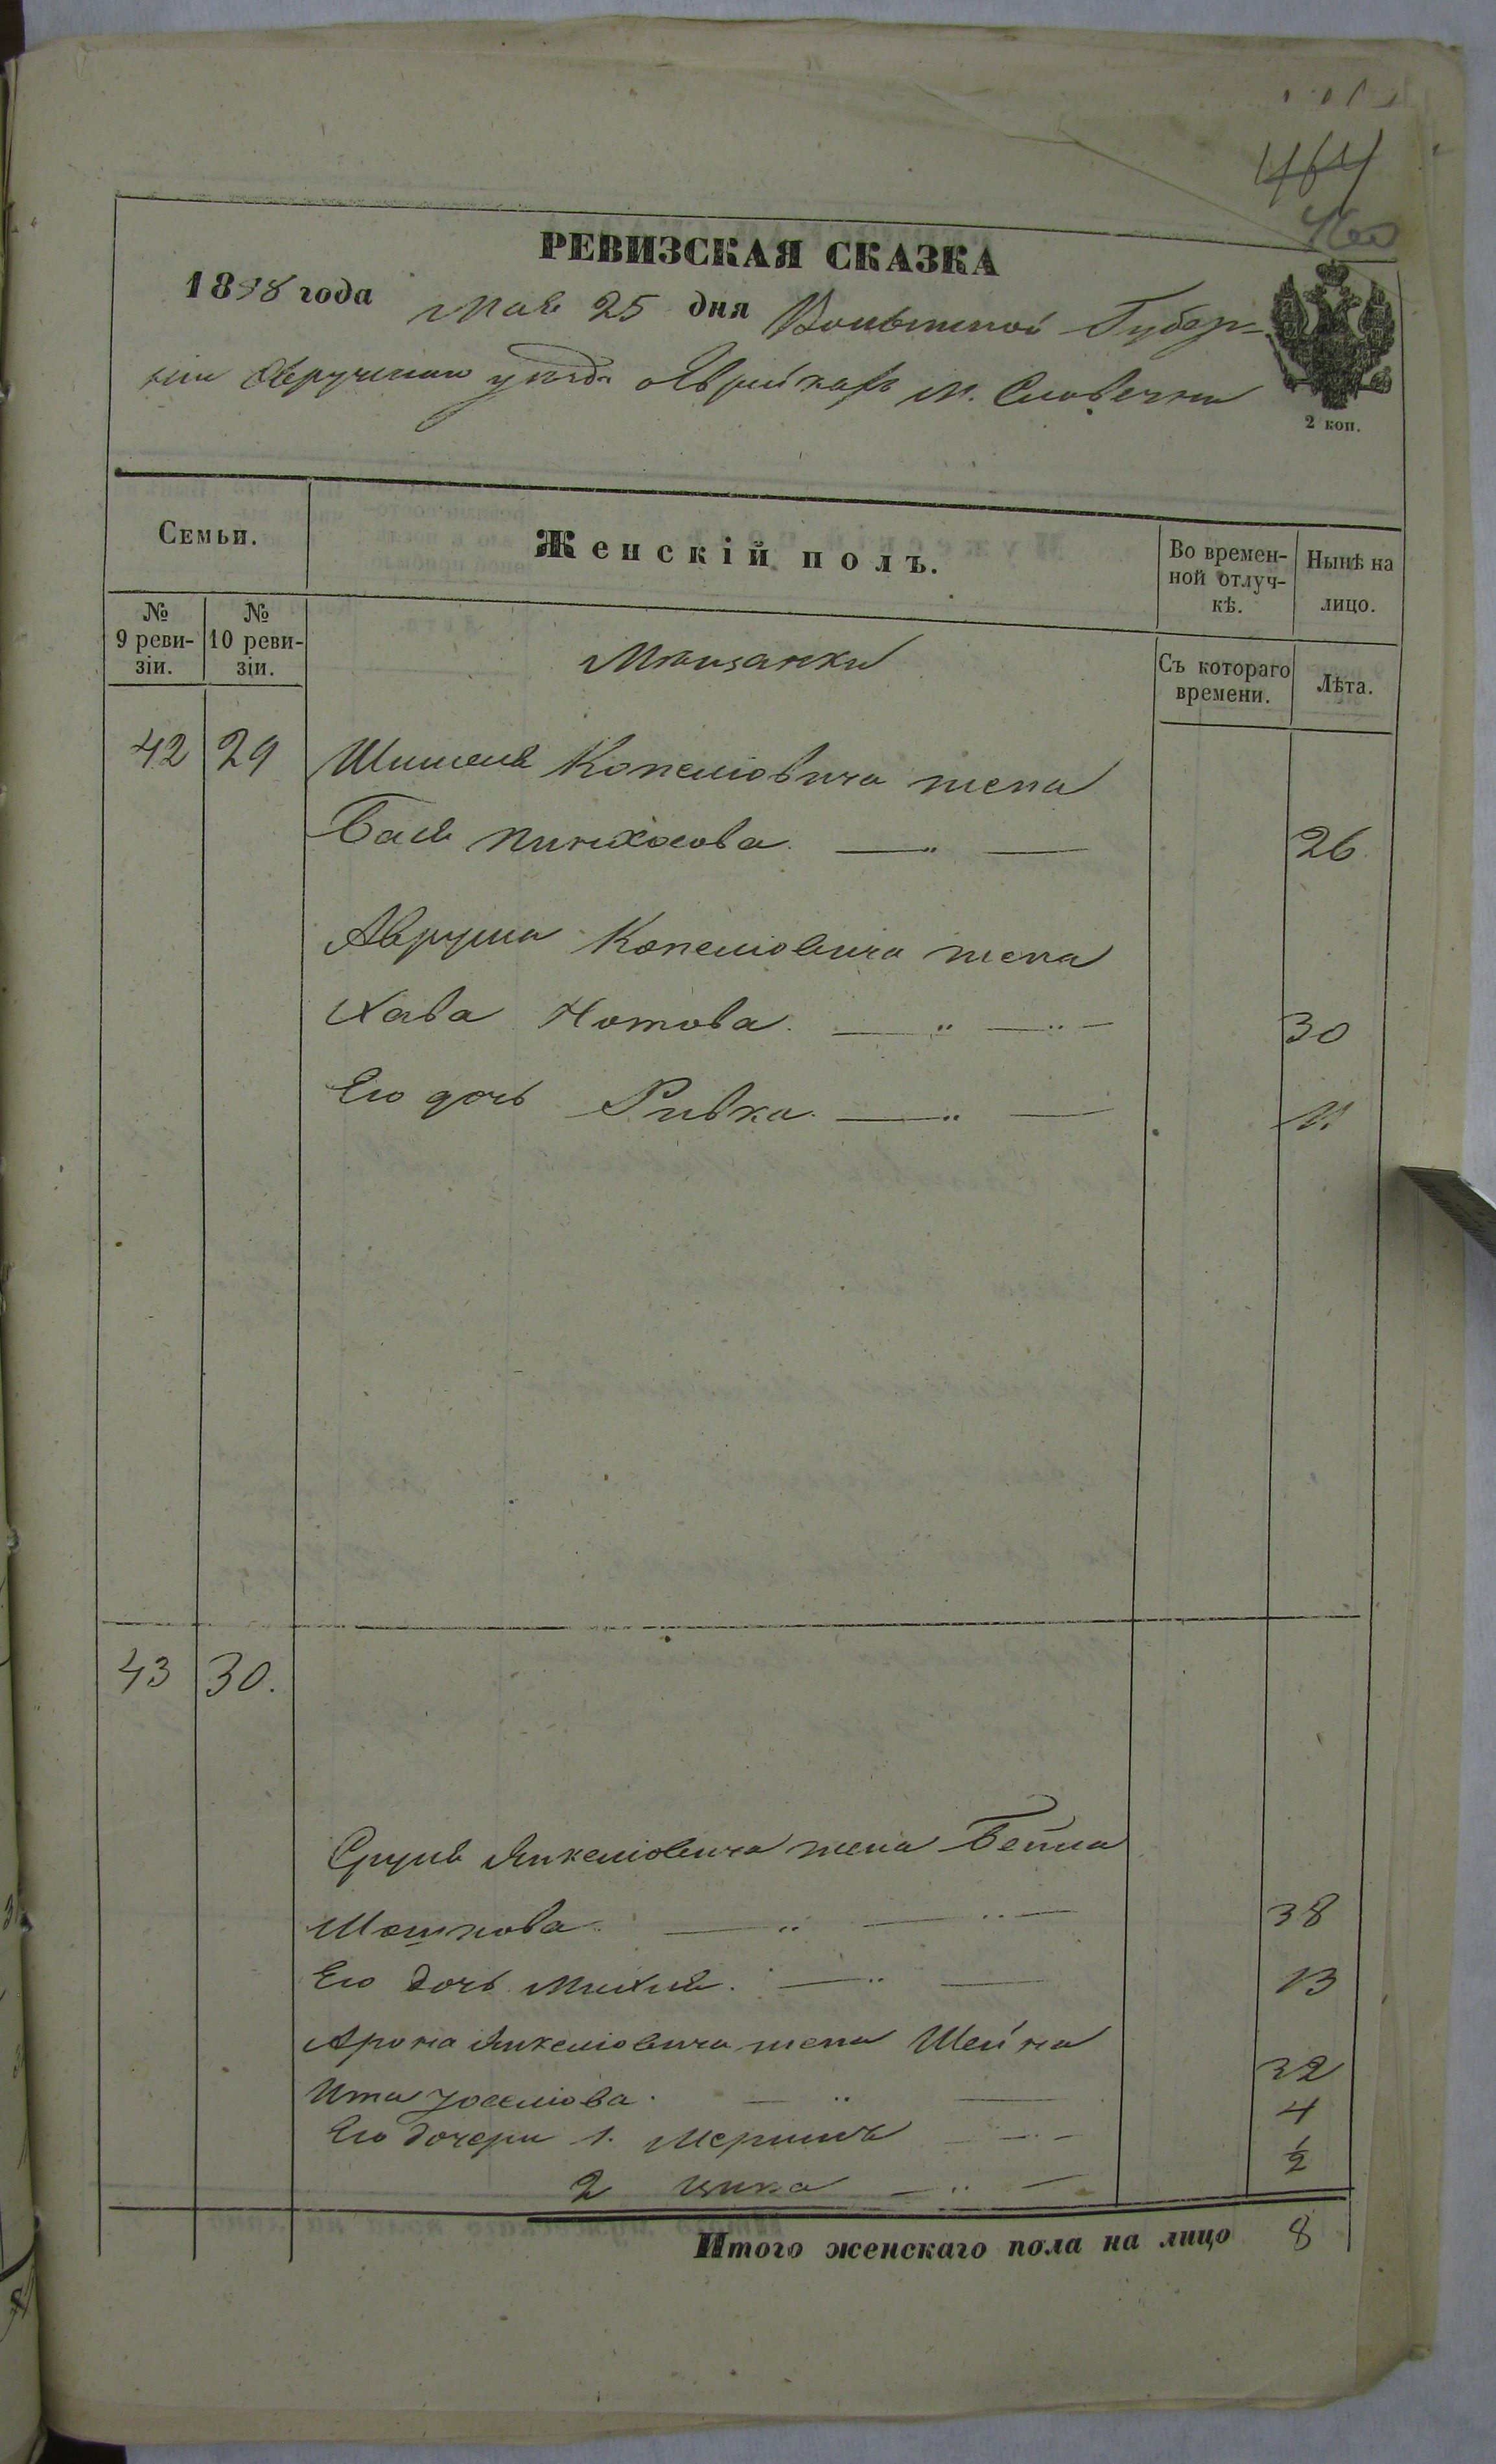 464
460
РЕВИЗСКАЯ СКАЗКА
1858 года Мая 25 дня Волынской Губер-
ніи Овручскаго уѣзда о Еврейкахъ м. Словечны
2 коп.
Семьи.
Женскій полъ.
Во времен-
ной отлуч-
кѣ.
Нынѣ на
лицо.
№
9 реви-
зіи.
№
10 реви-
зіи.
Мѣщанки
Съ котораго
времени.
Лѣта.
42 29 Шимеля Копелiовича жена
Бася Пинхасова. 26
Аврума Копелiовича жена
Хава Нотова. 30
Его дочь Ривка. 11
43 30.
Сруля Янкелiовича жена Бейла
Мошкова. 38
Его дочь Михля. 13
Арона Янкелiовича жена Шейна
Ита Іоселiова. 32
Его дочери 1. 4
2 Ципа 1/2
Итого женскаго пола на лицо 8